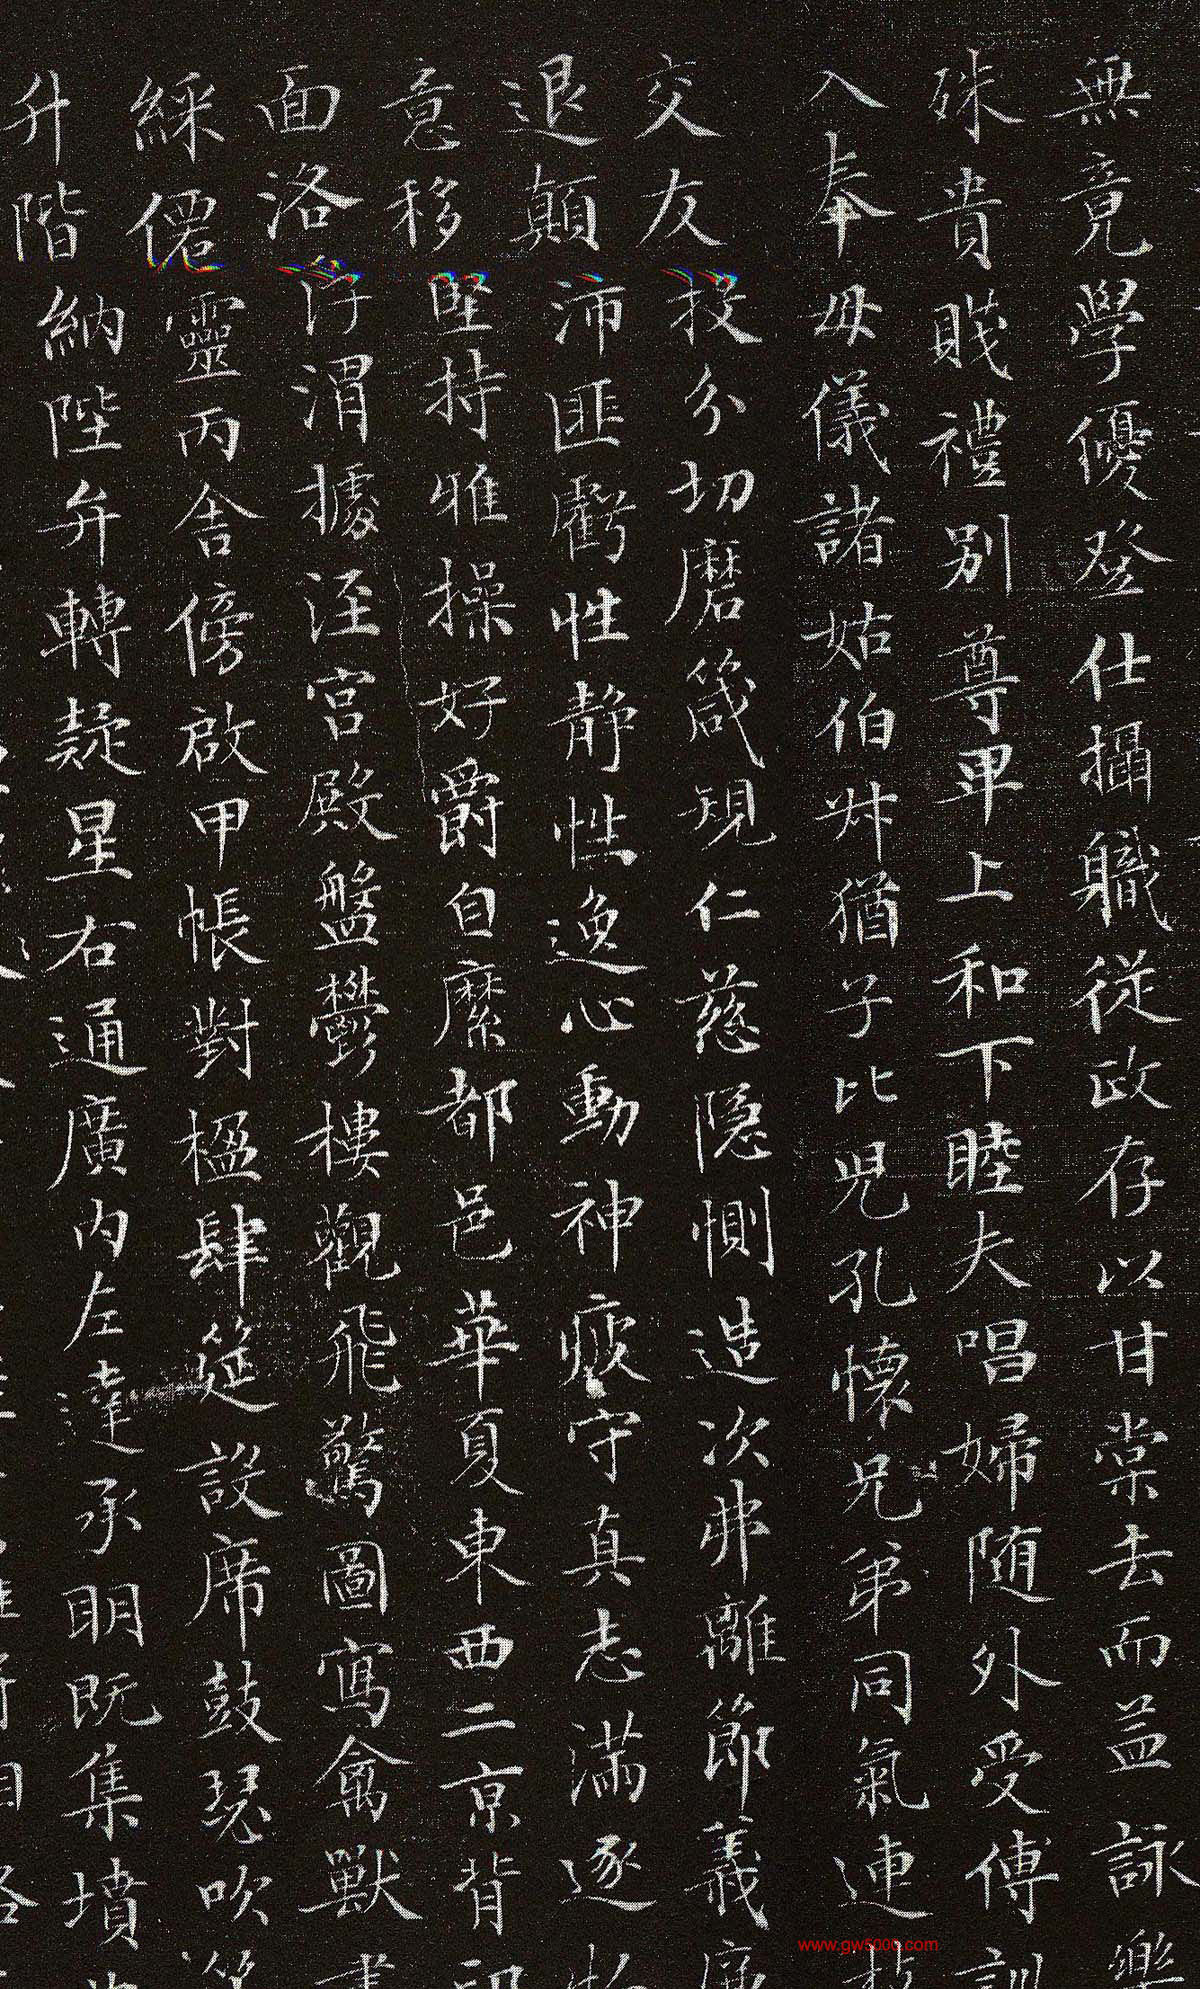 無竟學優登仕攝職從政存以甘棠去而益詠樂
殊貴賤禮別尊卑上和下睦夫唱婦随外受傅訓
入奉母儀諸姑伯叔猶子比兒孔懷兄弟同氣連枝
交友投分切磨箴規仁慈隱惻造次弗離節義廉
退顛沛匪虧性静性逸心動神疲守真志滿逐物
意移堅持雅操好爵自縻都邑華夏東西二京背邙
面洛浮渭據涇宮殿盤鬱樓觀飛驚圖寫禽獸畫
綵僊靈丙舍傍啟甲帳對楹肆筵設席鼓瑟吹笙
升階納陛弁轉疑星右通廣內左達承明既集墳
www.gw5000.com